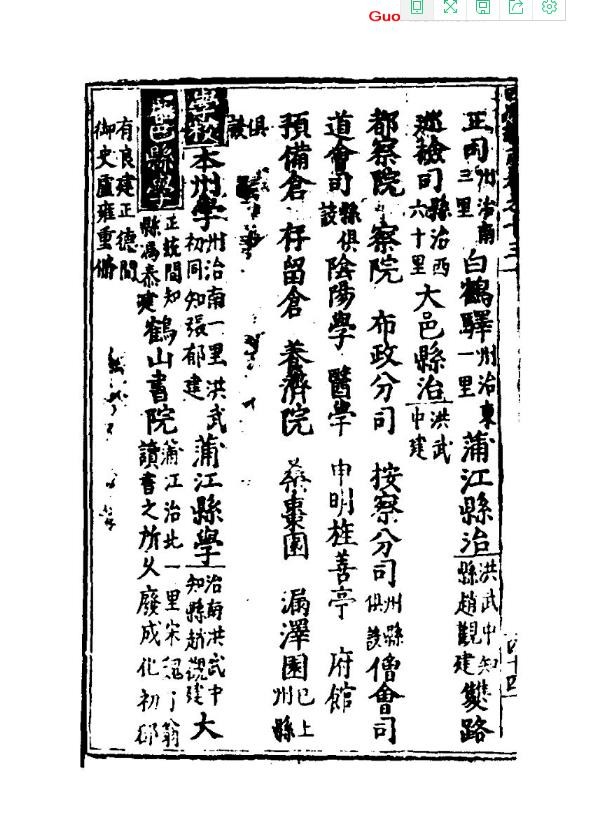 Guo
正司州治南三里白鶴驛州治東一里蒲江縣治洪武中知縣趙觀建雙路
巡檢司縣治西六十里大邑縣治洪武中建
都察院 察院 布政分司 按察分司州縣俱設僧會司
道會司縣俱設陰陽學 醫學 申明旌善亭 府館
預備倉 存留倉 養濟院 桑棗園 漏澤園已上州縣
俱設
學校本州學州治南一里洪武初同知張郁建蒲江縣學治南洪武中知縣趙觀建大
邑縣學正統間知縣馮泰建鶴山書院蒲江治北一里宋魏了翁讀書之所久廢成化初邵
有良建正德間御史盧雍重脩